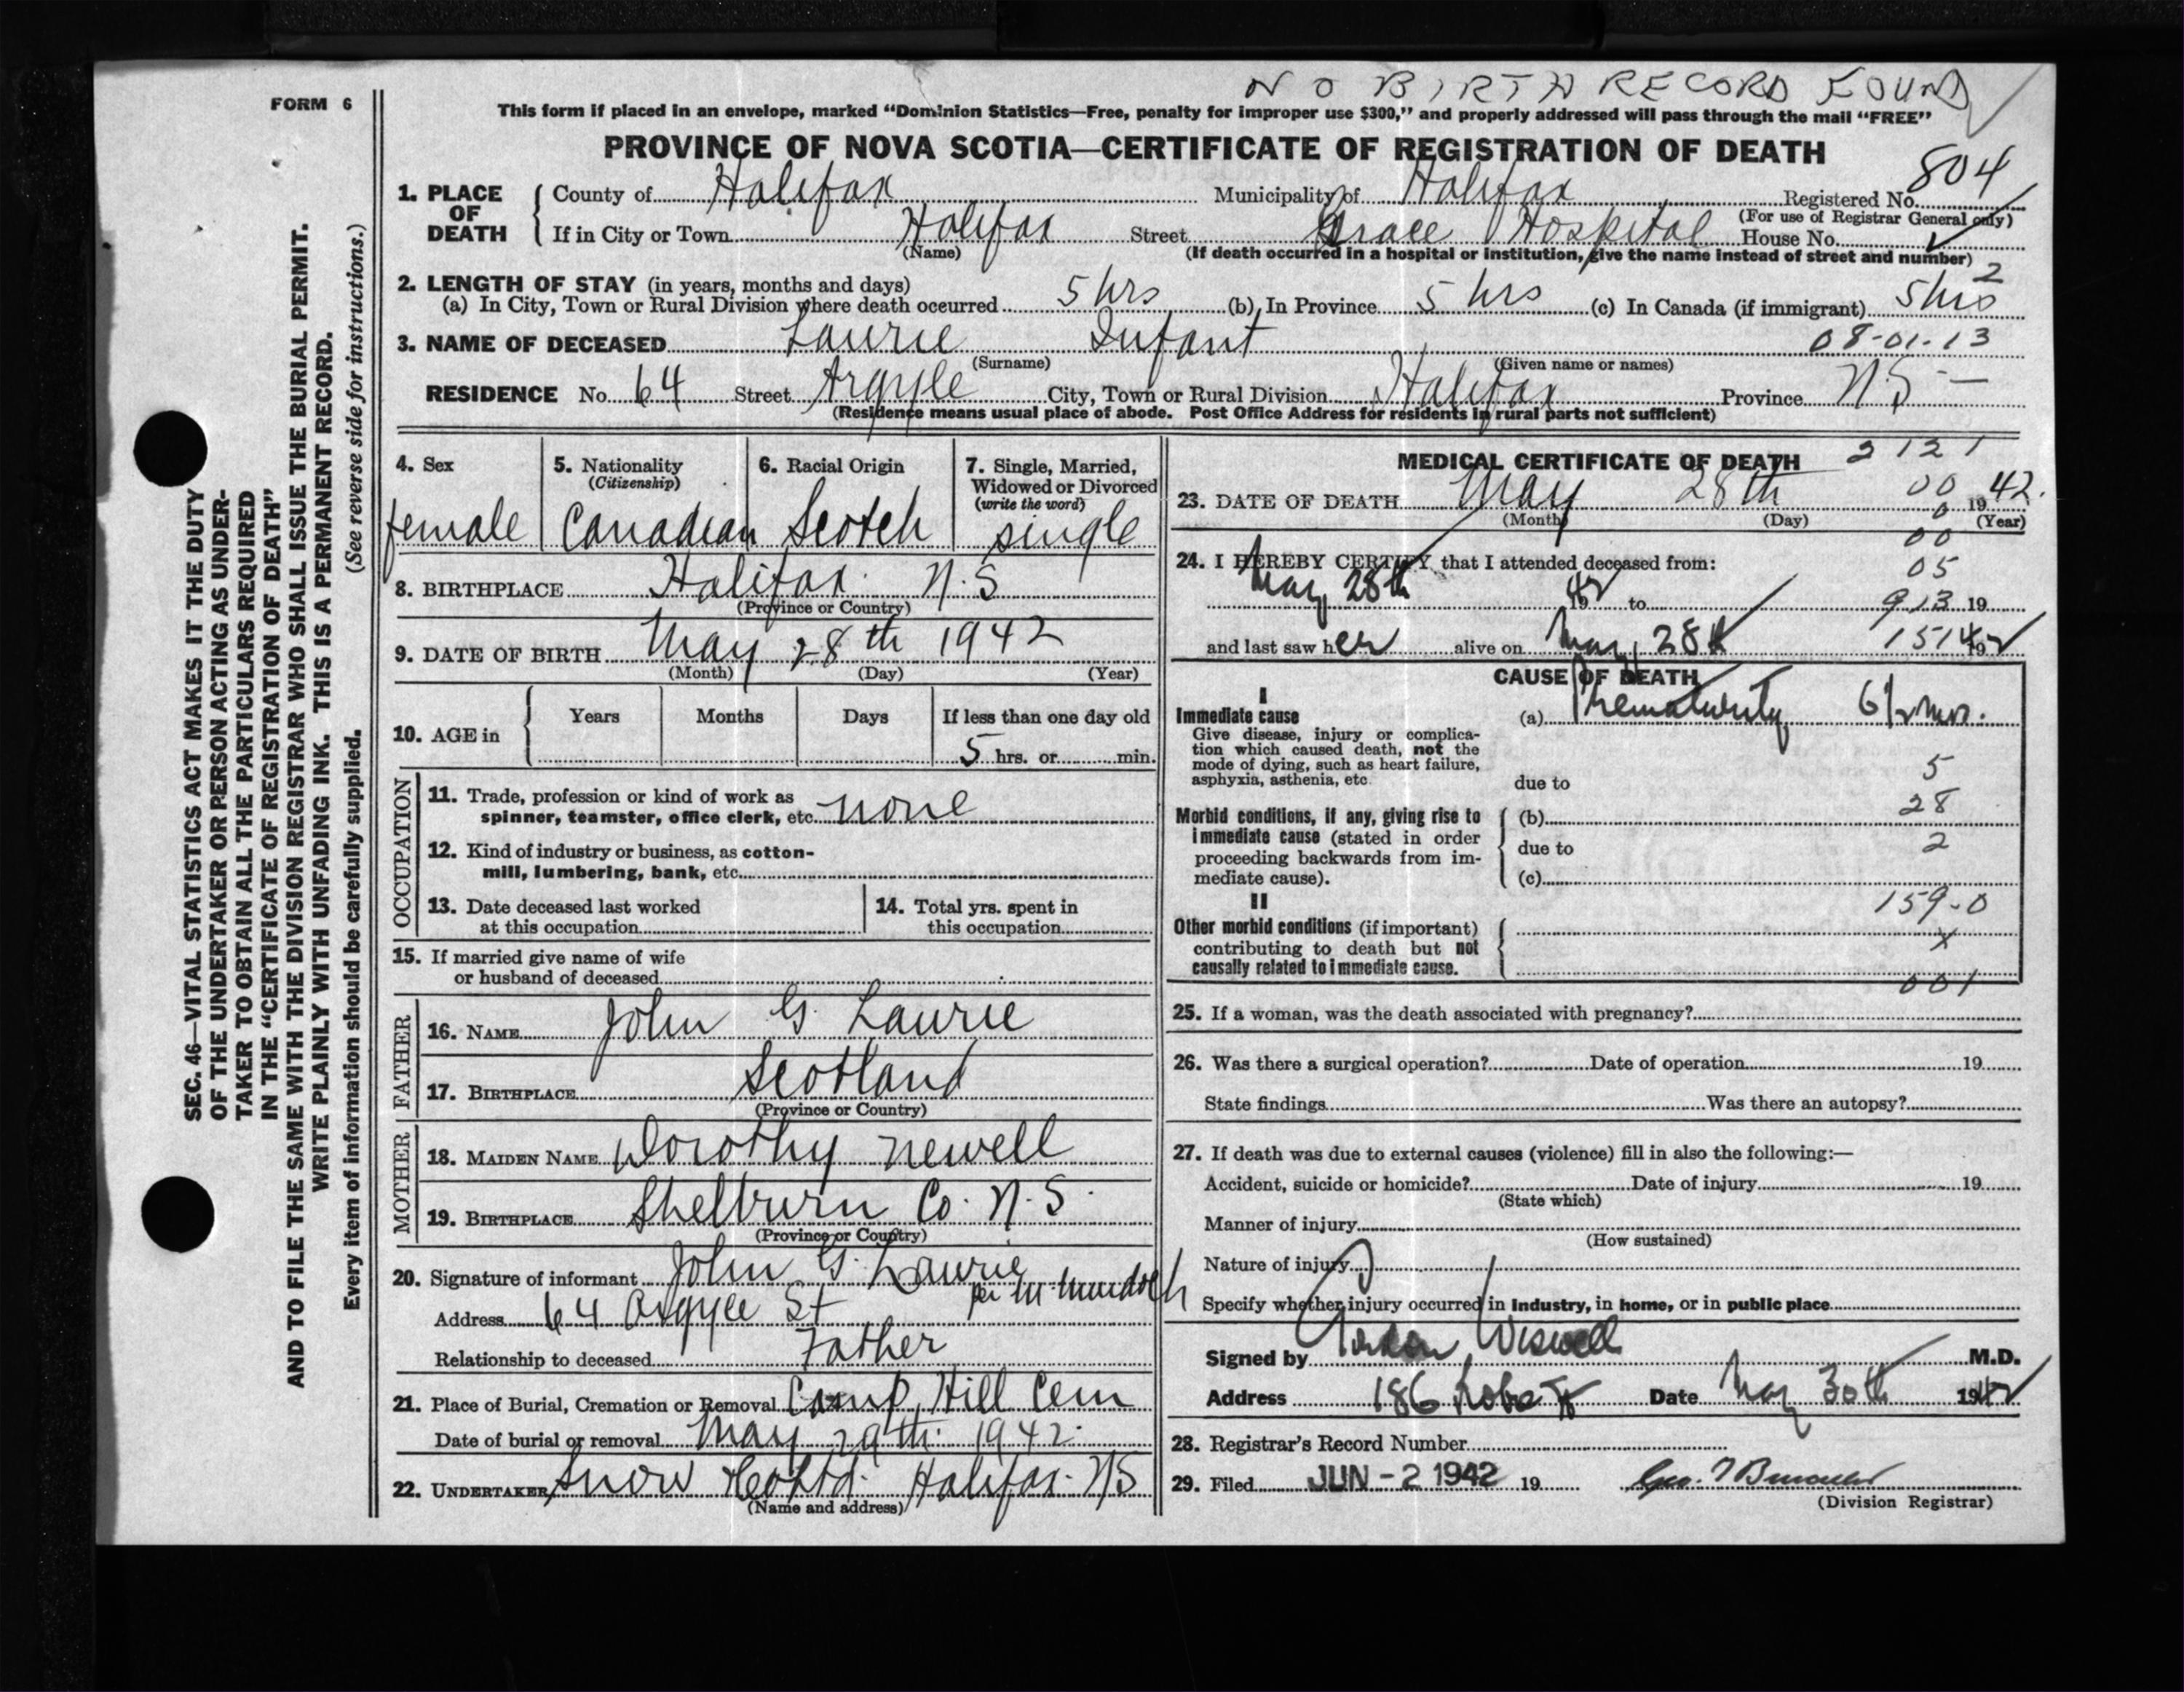 NO BIRTH RECORD FOUND
FORM 6
This form if placed in an envelope, marked “Dominion Statistics—Free, penalty for improper use $300,” and properly addressed will pass through the mail “FREE”
PROVINCE OF NOVA SCOTIA—CERTIFICATE OF REGISTRATION OF DEATH
804
1. PLACE OF DEATH
County of Halifax Municipality of Halifax Registered No.
(For use of Registrar General only)
If in City or Town Halifax Street Grace Hospital House No.
(Name) (If death occurred in a hospital or institution, give the name instead of street and number)
2
2. LENGTH OF STAY (in years, months and days)
(a) In City, Town or Rural Division where death occurred 5 hrs (b) In Province 5 hrs (c) In Canada (if immigrant) 5 hrs
3. NAME OF DECEASED Laurie Infant 08-01-13
(Surname) (Given name or names)
RESIDENCE No. 64 Street Argyle City, Town or Rural Division Halifax Province N.S—
(Residence means usual place of abode. Post Office Address for residents in rural parts not sufficient)
4. Sex
female
5. Nationality
(Citizenship)
Canadian
6. Racial Origin
Scotch
7. Single, Married,
Widowed or Divorced
(write the word)
single
8. BIRTHPLACE Halifax. N.S
(Province or Country)
9. DATE OF BIRTH May 28th 1942
(Month) (Day) (Year)
10. AGE in
Years Months Days If less than one day old
5 hrs. or min.
OCCUPATION
11. Trade, profession or kind of work as
spinner, teamster, office clerk, etc. none
12. Kind of industry or business, as cotton-
mill, lumbering, bank, etc.
13. Date deceased last worked
at this occupation
14. Total yrs. spent in
this occupation
15. If married give name of wife
or husband of deceased
FATHER
16. NAME John G. Laurie
17. BIRTHPLACE Scotland
(Province or Country)
MOTHER
18. MAIDEN NAME Dorothy Newell
19. BIRTHPLACE Shelburn Co. N.S.
(Province or Country)
20. Signature of informant John G. Laurie
per M. Murdoch
Address 64 Argyle St
Relationship to deceased Father
21. Place of Burial, Cremation or Removal Camp Hill Cem
Date of burial or removal May 29th. 1942.
22. UNDERTAKER Snow & Co Ltd. Halifax. NS
(Name and address)
MEDICAL CERTIFICATE OF DEATH 2121
23. DATE OF DEATH May 28th 00 1942.
(Month) (Day) 0 (Year)
00
24. I HEREBY CERTIFY that I attended deceased from: 05
May 28th 1942 to 913 19
and last saw her alive on May 28th 151 1942
CAUSE OF DEATH
I
Immediate cause
Give disease, injury or complica-
tion which caused death, not the
mode of dying, such as heart failure,
asphyxia, asthenia, etc.
(a) Prematurity 6½ mos.
5
due to
28
Morbid conditions, if any, giving rise to
immediate cause (stated in order
proceeding backwards from im-
mediate cause).
(b)
due to 2
(c)
159-0
II
Other morbid conditions (if important)
contributing to death but not
causally related to immediate cause.
x
001
25. If a woman, was the death associated with pregnancy?
26. Was there a surgical operation? Date of operation 19
State findings Was there an autopsy?
27. If death was due to external causes (violence) fill in also the following:—
Accident, suicide or homicide? Date of injury 19
(State which)
Manner of injury
(How sustained)
Nature of injury
Specify whether injury occurred in Industry, in home, or in public place
Signed by Gordon Wiswell M.D.
Address 186 Robie St Date May 30th 1942
28. Registrar's Record Number
29. Filed JUN -2 1942 19
(Division Registrar)
SEC. 46—VITAL STATISTICS ACT MAKES IT THE DUTY
OF THE UNDERTAKER OR PERSON ACTING AS UNDER-
TAKER TO OBTAIN ALL THE PARTICULARS REQUIRED
IN THE “CERTIFICATE OF REGISTRATION OF DEATH”
AND TO FILE THE SAME WITH THE DIVISION REGISTRAR WHO SHALL ISSUE THE BURIAL PERMIT.
WRITE PLAINLY WITH UNFADING INK. THIS IS A PERMANENT RECORD.
Every item of information should be carefully supplied. (See reverse side for instructions.)